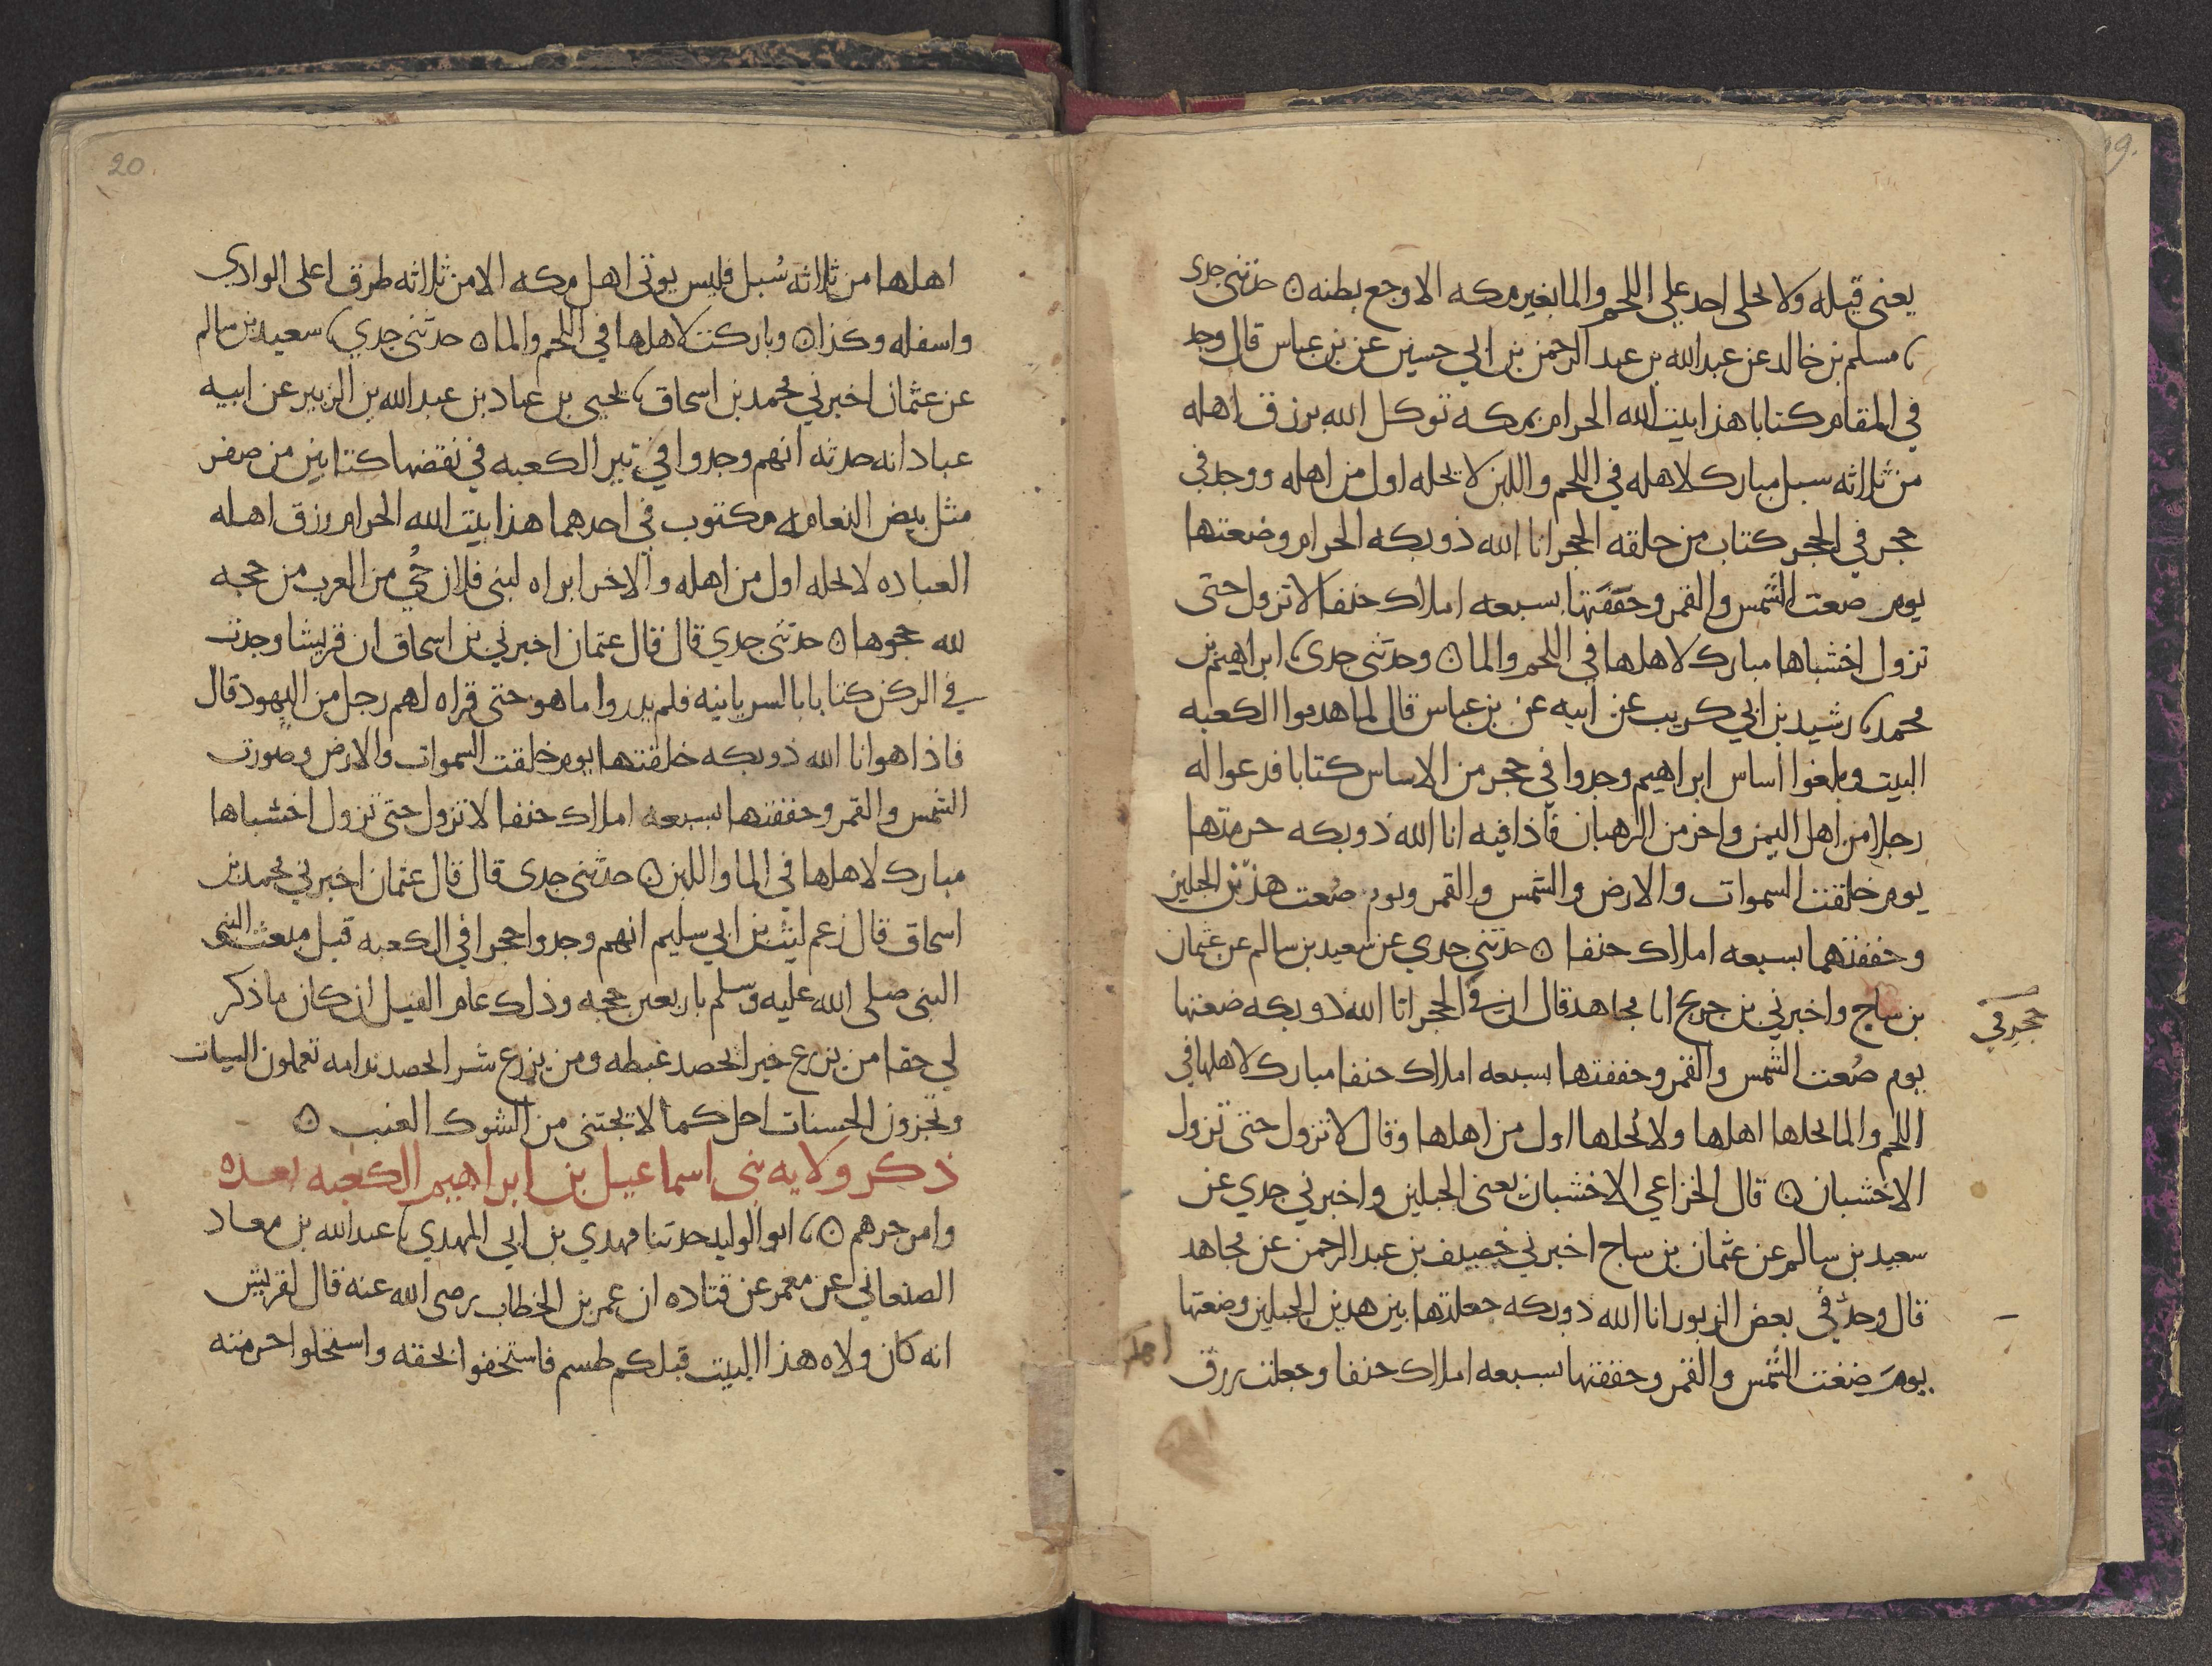 19.
يعنى قيله ولا يخلى احد على اللحم والما بغير مكه الا وجع بطنه ۞ حدثنى جدى
مسلم بن خالد عن عبد الله بن عبد الرحمن بن ابي حسين عن بن عباس قال وجد
في المقام كتابا هذا بيت الله الحرام بمكه توكل الله برزق اهله
من ثلاثه سبل مبارك لاهله في اللحم واللبن لا يحله اول من اهله ووجد في
حجر في الحجر كتاب من خلقه الحجر انا الله ذو بكه الحرام وضعتها
يوم صنعت الشمس والقمر وحففتها بسبعه املاك حنفا لا تزول حتى
تزول اخشباها مبارك لاهلها في اللحم والما ۞ وحدثنى جدى ابراهيم بن
محمد رشيد بن ابي كريب عن ابيه عن بن عباس قال لما هدموا الكعبه
البيت وبلغوا اساس ابراهيم وجدوا في حجر من الاساس كتابا فدعوا له
رجلا من اهل اليمن واخر من الرهبان فاذا فيه انا الله ذو بكه حرمتها
يوم خلقت السموات والارض والشمس والقمر ويوم صنعت هذين الجبلين
وحففتهما بسبعه املاك حنفا ۞ حدثنى جدي عن سعيد بن سالم عن عثمان
بن ساج واخبرني بن جريج انا مجاهد قال ان في الحجر انا الله ذو بكه صنعتها
حجر في
يوم صنعت الشمس والقمر وحففتها بسبعه املاك حنفا مبارك لاهلها في
اللحم والما يحلها اهلها ولا يحلها اول من اهلها وقال لا تزول حتى تزول
الاخشبان ۞ قال الخزاعي الاخشبان يعنى الجبلين واخبرني جدي عن
سعيد بن سالم عن عثمان بن ساج اخبرني خصيف بن عبد الرحمن عن مجاهد
قال وجد في بعض الزبور انا الله ذو بكه جعلتها بين هذين الجبلين وضعتها
يوم صنعت الشمس والقمر وحففتها بسبعه املاك حنفا وجعلت رزق
اهلها
20.
اهلها من ثلاثه سُبل فليس يوتى اهل مكه الا من ثلاثه طرق اعلى الوادي
واسفله وكذا ۞ وباركت لاهلها في اللحم والما ۞ حدثنى جدي سعيد بن سالم
عن عثمان اخبرني محمد بن اسحاق يحيى بن عباد بن عبد الله بن الزبير عن ابيه
عباد انه حدثه انهم وجدوا في بير الكعبه في نقضها كتابين من صفر
مثل بيض النعامه مكتوب في احدهما هذا بيت الله الحرام رزق اهله
العباده لا يحله اول من اهله والاخر ابراه لبنى فلان حُي من العرب من حجه
لله حجوها ۞ حدثنى جدي قال قال عثمان اخبرني بن اسحاق ان قريشا وجدت
في الركن كتابا بالسريانيه فلم يدروا ما هو حتى قراه لهم رجل من اليهود قال
فاذا هو انا الله ذو بكه خلقتها يوم خلقت السموات والارض وصورت
الشمس والقمر وحففتها بسبعه املاك حنفا لا تزول حتى تزول اخشباها
مبارك لاهلها في الما واللبن ۞ حدثنى جدى قال قال عثمان اخبرني محمد بن
اسحاق قال زعم ليث بن ابي سليم انهم وجدوا حجرا في الكعبه قبل مبعث النبي
النبى صلى الله عليه وسلم باربعين حجه وذلك عام الفيل ان كان ما ذكر
لي حقا من يزرع خيرا يحصد غبطه ومن يزرع شرا يحصد ندامه تعملون السيات
وتجزون الحسنات اجل كما لا يجتنى من الشوك العنب ۞
ذكر ولايه بنى اسماعيل بن ابراهيم الكعبه بعده
وامر جرهم ۞ ابو الوليد حدثنا مهدي بن ابي المهدي عبد الله بن معاد
الصنعاني عن معمر عن قتاده ان عمر بن الخطاب رضى الله عنه قال لقريش
انه كان ولاه هذا البيت قبلكم طسم فاستخفوا بحقه واستحلوا حرمته